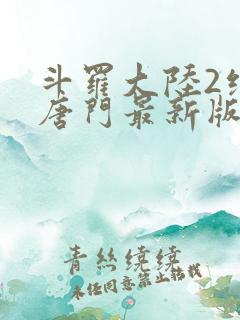 斗羅大陸2絕
唐門最新版
青絲繞繞
未經同意禁止轉載